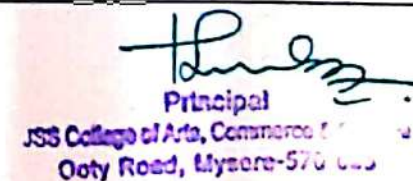 Principal
JSS College of Arts, Commerce &
Ooty Road, Mysore-570